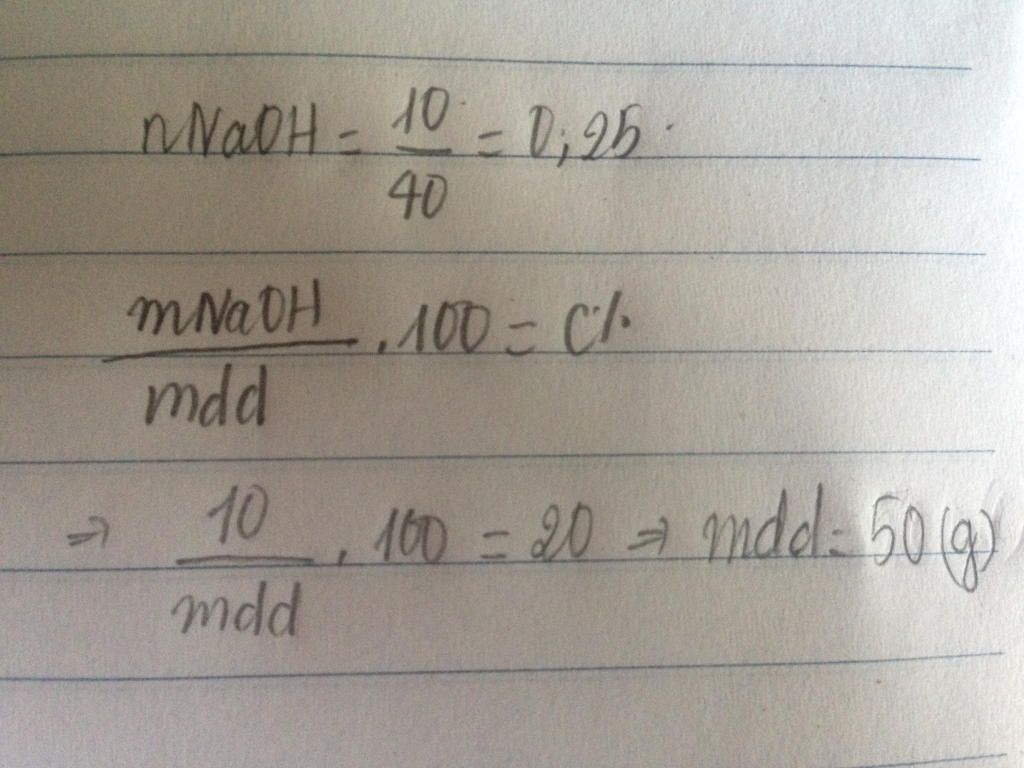 nNaOH = 10/40 = 0,25
mNaOH/mdd . 100 = C%
⇒ 10/mdd . 100 = 20 ⇒ mdd = 50(g)